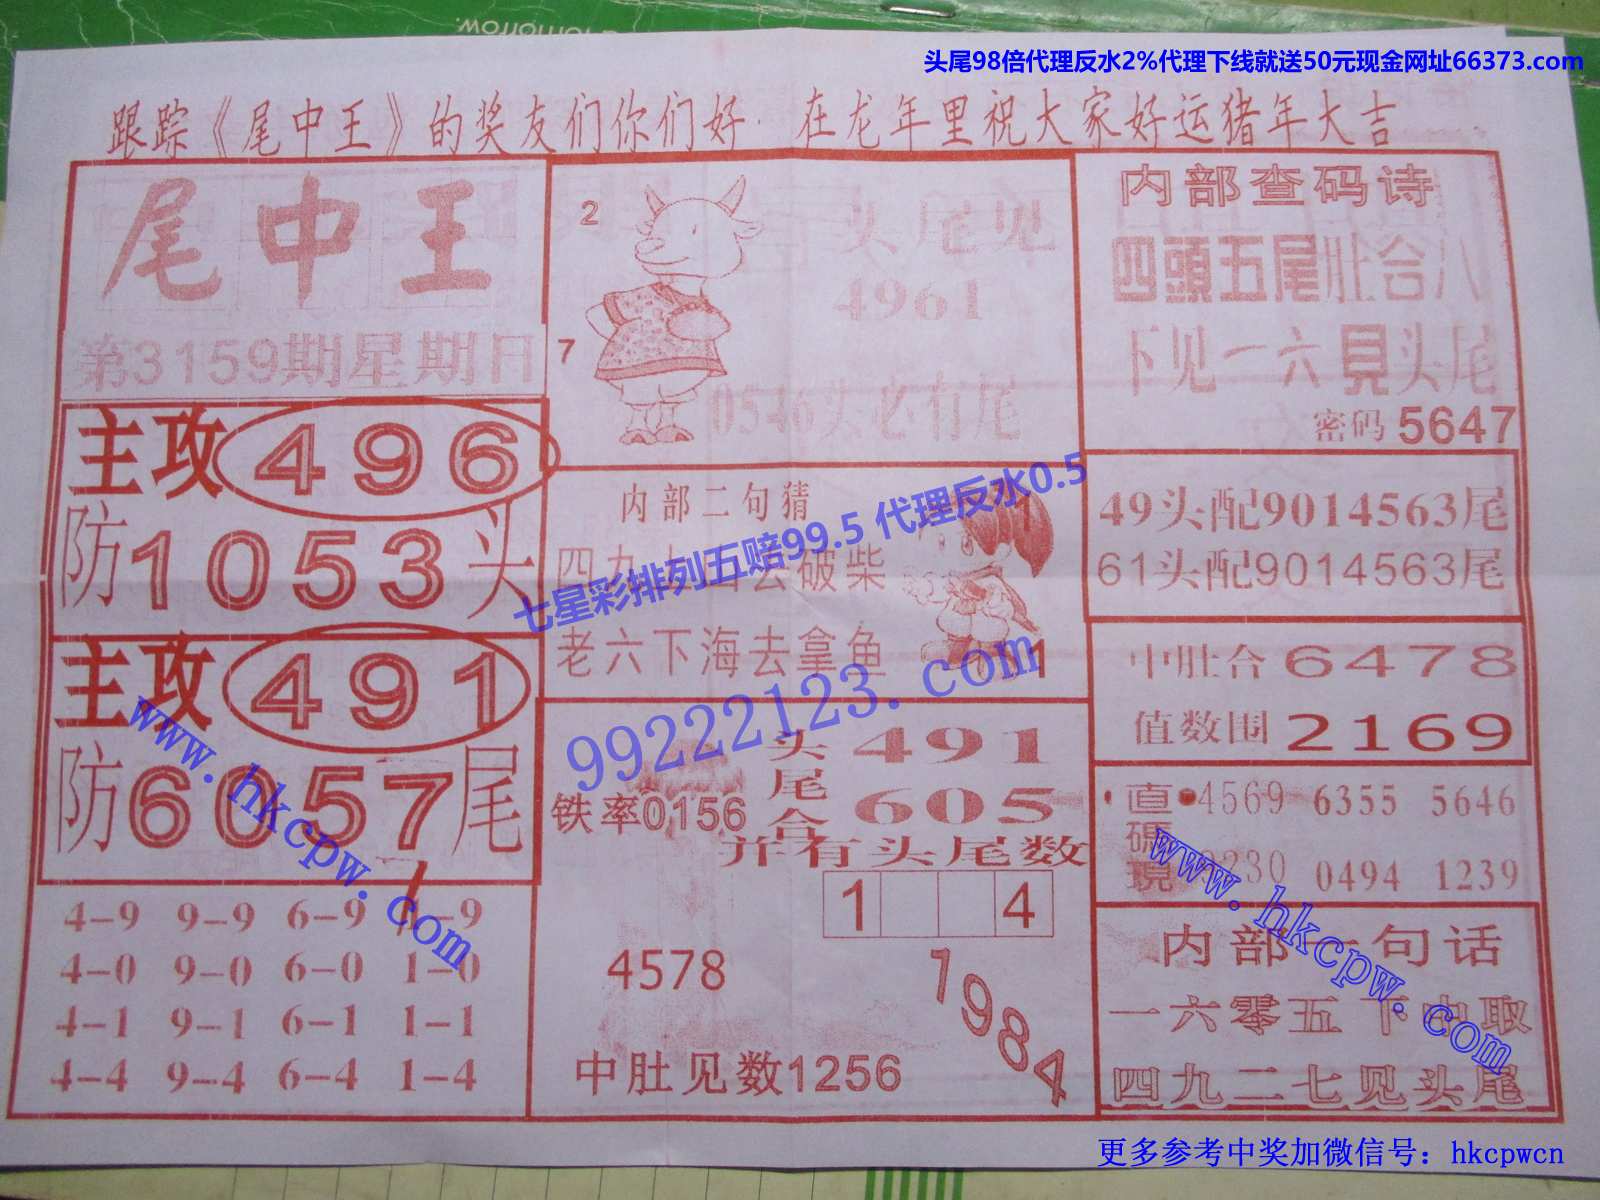 头尾98倍代理反水2%代理下线就送50元现金网址66373.com
跟踪《尾中王》的奖友们你们好 在龙年里祝大家好运猪年大吉
尾中王
第3159期星期日
主攻 496
防1053头
主攻 491
防6057尾
4-9 9-9 6-9 1-9
4-0 9-0 6-0 1-0
4-1 9-1 6-1 1-1
4-4 9-4 6-4 1-4
2
7
头尾见
4961
0546头必有尾
内部二句猜
四九上山去破柴
老六下海去拿鱼
1
1
铁率0156
头尾合 491
605
并有头尾数
1 4
4578
1984
中肚见数1256
内部查码诗
四頭五尾肚合八
下见一六見头尾
密码 5647
49头配9014563尾
61头配9014563尾
中肚合 6478
值数围 2169
直碼現 4569 6355 5646
0494 1239
内部一句话
一六零五下中取
四九二七见头尾
七星彩排列五赔99.5 代理反水0.5
99222123.com
www.hkcpw.com
www.hkcpw.com
更多参考中奖加微信号：hkcpwcn